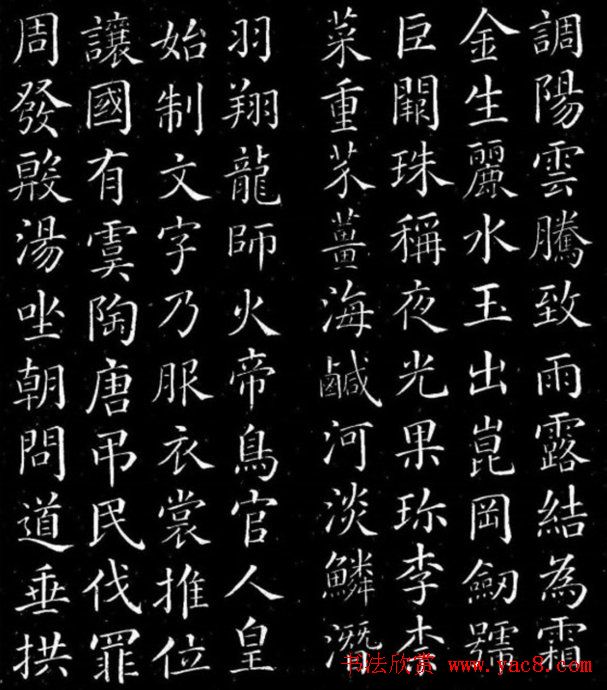 調陽雲騰致雨露結為霜
金生麗水玉出崑岡劒號
巨闕珠稱夜光果珎李柰
菜重芥薑海鹹河淡鱗潛
羽翔龍師火帝鳥官人皇
始制文字乃服衣裳推位
讓國有虞陶唐吊民伐罪
周發殷湯坐朝問道垂拱
书法欣赏 www.yac8.com